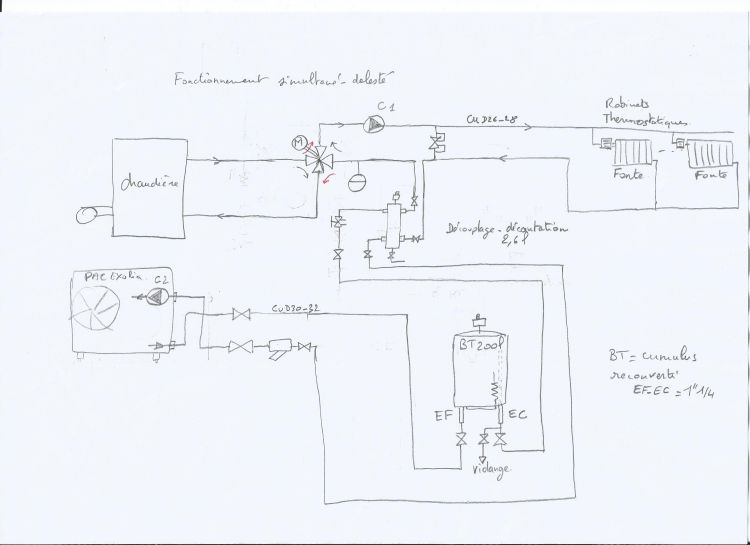 Fonctionnement simultané - délesté
C1
CUD26-28
Robinets
Thermostatiques
M
chaudière
Fonte
Fonte
Découplage - dégazutation
2,6l
PAC Exelia
C2
CUD30-32
BT200l
EF
EC
Vidange
BT = cumulus
reconverti
EF-EC = 1"1/4